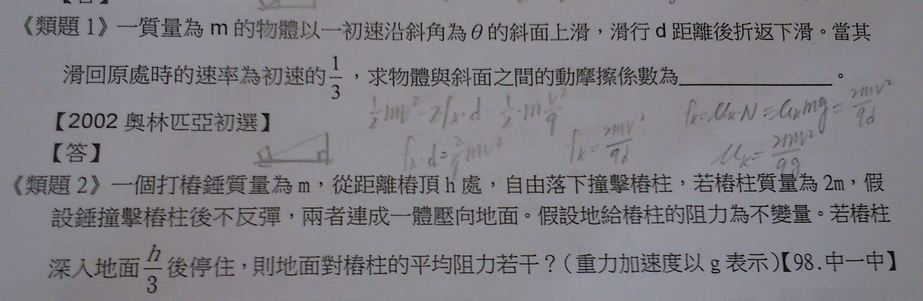 《類題 1》一質量為 m 的物體以一初速沿斜角為 θ 的斜面上滑，滑行 d 距離後折返下滑。當其
滑回原處時的速率為初速的 1/3，求物體與斜面之間的動摩擦係數為＿＿＿＿＿＿。
½mv² - 2fₖ·d = ½·m v²/9
fₖ=μₖ·N=μₖmg=2mv²/9d
【2002 奧林匹亞初選】
【答】
fₖ·d=2/9 mv²
fₖ=2mv²/9d
《類題 2》一個打樁錘質量為 m，從距離樁頂 h 處，自由落下撞擊樁柱，若樁柱質量為 2m，假
設錘撞擊樁柱後不反彈，兩者連成一體壓向地面。假設地給樁柱的阻力為不變量。若樁柱
深入地面 h/3 後停住，則地面對樁柱的平均阻力若干？（重力加速度以 g 表示）【98.中一中】